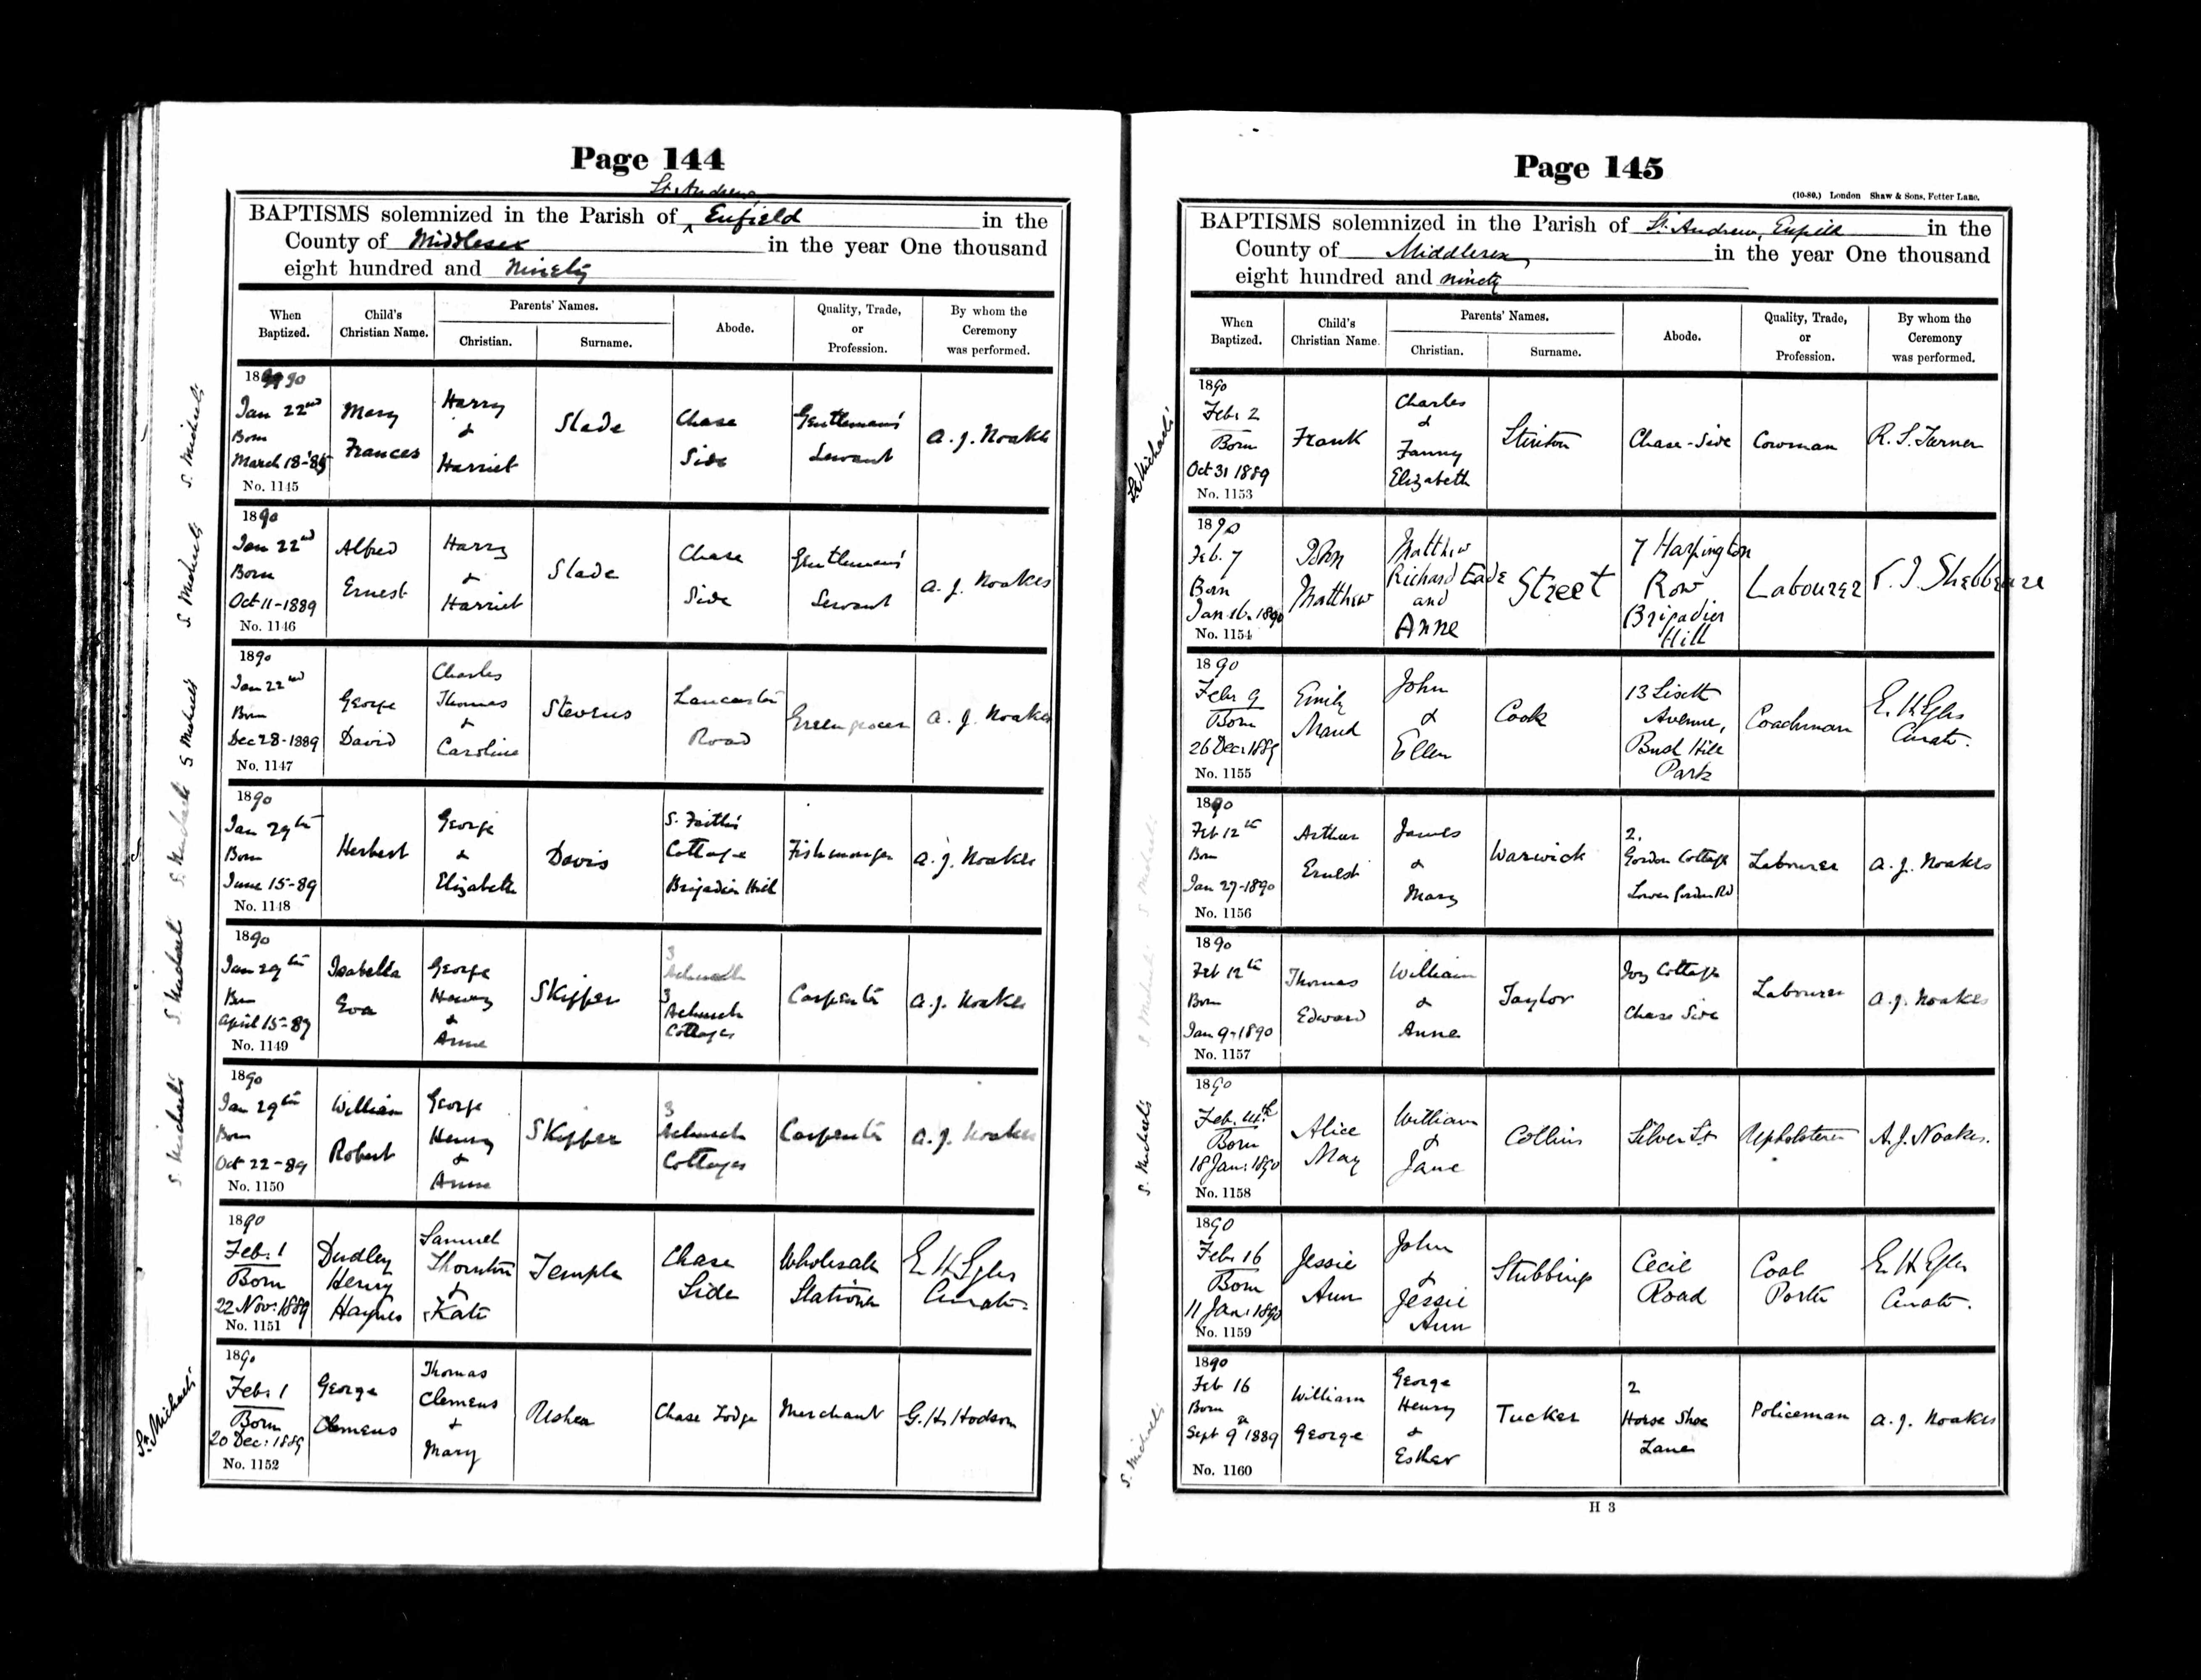 Page 144
St Andrews
BAPTISMS solemnized in the Parish of ^ Enfield in the
County of Middlesex in the year One thousand
eight hundred and Ninety
When Baptized.
Child's Christian Name.
Parents' Names.
Christian.
Surname.
Abode.
Quality, Trade, or Profession.
By whom the Ceremony was performed.
S. Michaels
1890
Jan 22nd
Born
March 18-'85
No. 1145
Mary
Frances
Harry
&
Harriet
Slade
Chase
Side
Gentleman's
Servant
A. J. Noakes
S. Michaels
1890
Jan 22nd
Born
Oct 11-1889
No. 1146
Alfred
Ernest
Harry
&
Harriet
Slade
Chase
Side
Gentleman's
Servant
A. J. Noakes
S Michaels
1890
Jan 22nd
Born
Dec 28-1889
No. 1147
George
David
Charles
Thomas
&
Caroline
Stevens
Lancaster
Road
Greengrocer
A. J. Noakes
S. Michaels
1890
Jan 29th
Born
June 15-89
No. 1148
Herbert
George
&
Elizabeth
Davis
S. Faith's
Cottage
Brigadier Hill
Fishmonger
A. J. Noakes
S. Michaels
1890
Jan 29th
Born
April 15-87
No. 1149
Isabella
Eva
George
Henry
&
Anne
Skipper
3
3
Achurch
Cottages
Carpenter
A. J. Noakes
S. Michaels
1890
Jan 29th
Born
Oct 22-89
No. 1150
William
Robert
George
Henry
&
Anne
Skipper
3
Achurch
Cottages
Carpenter
A. J. Noakes
1890
Feb. 1
Born
22 Nov: 1889
No. 1151
Dudley
Henry
Haynes
Samuel
Thornton
&
Kate
Temple
Chase
Side
Wholesale
Stationer
E. H. Egles
Curate.
St. Michael's
1890
Feb. 1
Born
20 Dec: 1889
No. 1152
George
Clemens
Thomas
Clemens
&
Mary
Usher
Chase Lodge
Merchant
G. H. Hodson
Page 145
(10-80.) London Shaw & Sons, Fetter Lane.
BAPTISMS solemnized in the Parish of St. Andrew, Enfield in the
County of Middlesex, in the year One thousand
eight hundred and ninety
When Baptized.
Child's Christian Name.
Parents' Names.
Christian.
Surname.
Abode.
Quality, Trade, or Profession.
By whom the Ceremony was performed.
St Michaels'
1890
Feb: 2
Born
Oct 31 1889
No. 1153
Frank
Charles
&
Fanny
Elizabeth
Stinton
Chase-Side
Cowman
R. S. Turner
1890
Feb. 7
Born
Jan 16. 1890
No. 1154
John
Matthew
Matthew
Richard Eade
and
Anne
Street
7 Harpington
Row
Brigadier
Hill
Labourer
1890
Feb. 9
Born
26 Dec: 1889
No. 1155
Emily
Maud
John
&
Ellen
Cook
13
Avenue,
Bush Hill
Park
Coachman
E. H. Egles
Curate.
S. Michaels
1890
Feb 12th
Born
Jan 27-1890
No. 1156
Arthur
Ernest
James
&
Mary
Warwick
2.
Gordon Cottage
Lower Gordon Rd
Labourer
A. J. Noakes
S. Michaels
1890
Feb 12th
Born
Jan 9-1890
No. 1157
Thomas
Edward
William
&
Anne
Taylor
Ivy Cottage
Chase Side
Labourer
A. J. Noakes
S. Michaels
1890
Feb. 14th
Born
18 Jan: 1890
No. 1158
Alice
May
William
&
Jane
Collins
Silver St
Upholsterer
A. J. Noakes.
1890
Feb. 16
Born
11 Jan: 1890
No. 1159
Jessie
Ann
John
&
Jessie
Ann
Stubbings
Cecil
Road
Coal
Porter
E. H. Egles
Curate.
S. Michaels
1890
Feb 16
Born
Sept 9th 1889
No. 1160
William
George
George
Henry
&
Esther
Tucker
2
Horse Shoe
Lane
Policeman
A. J. Noakes
H 3